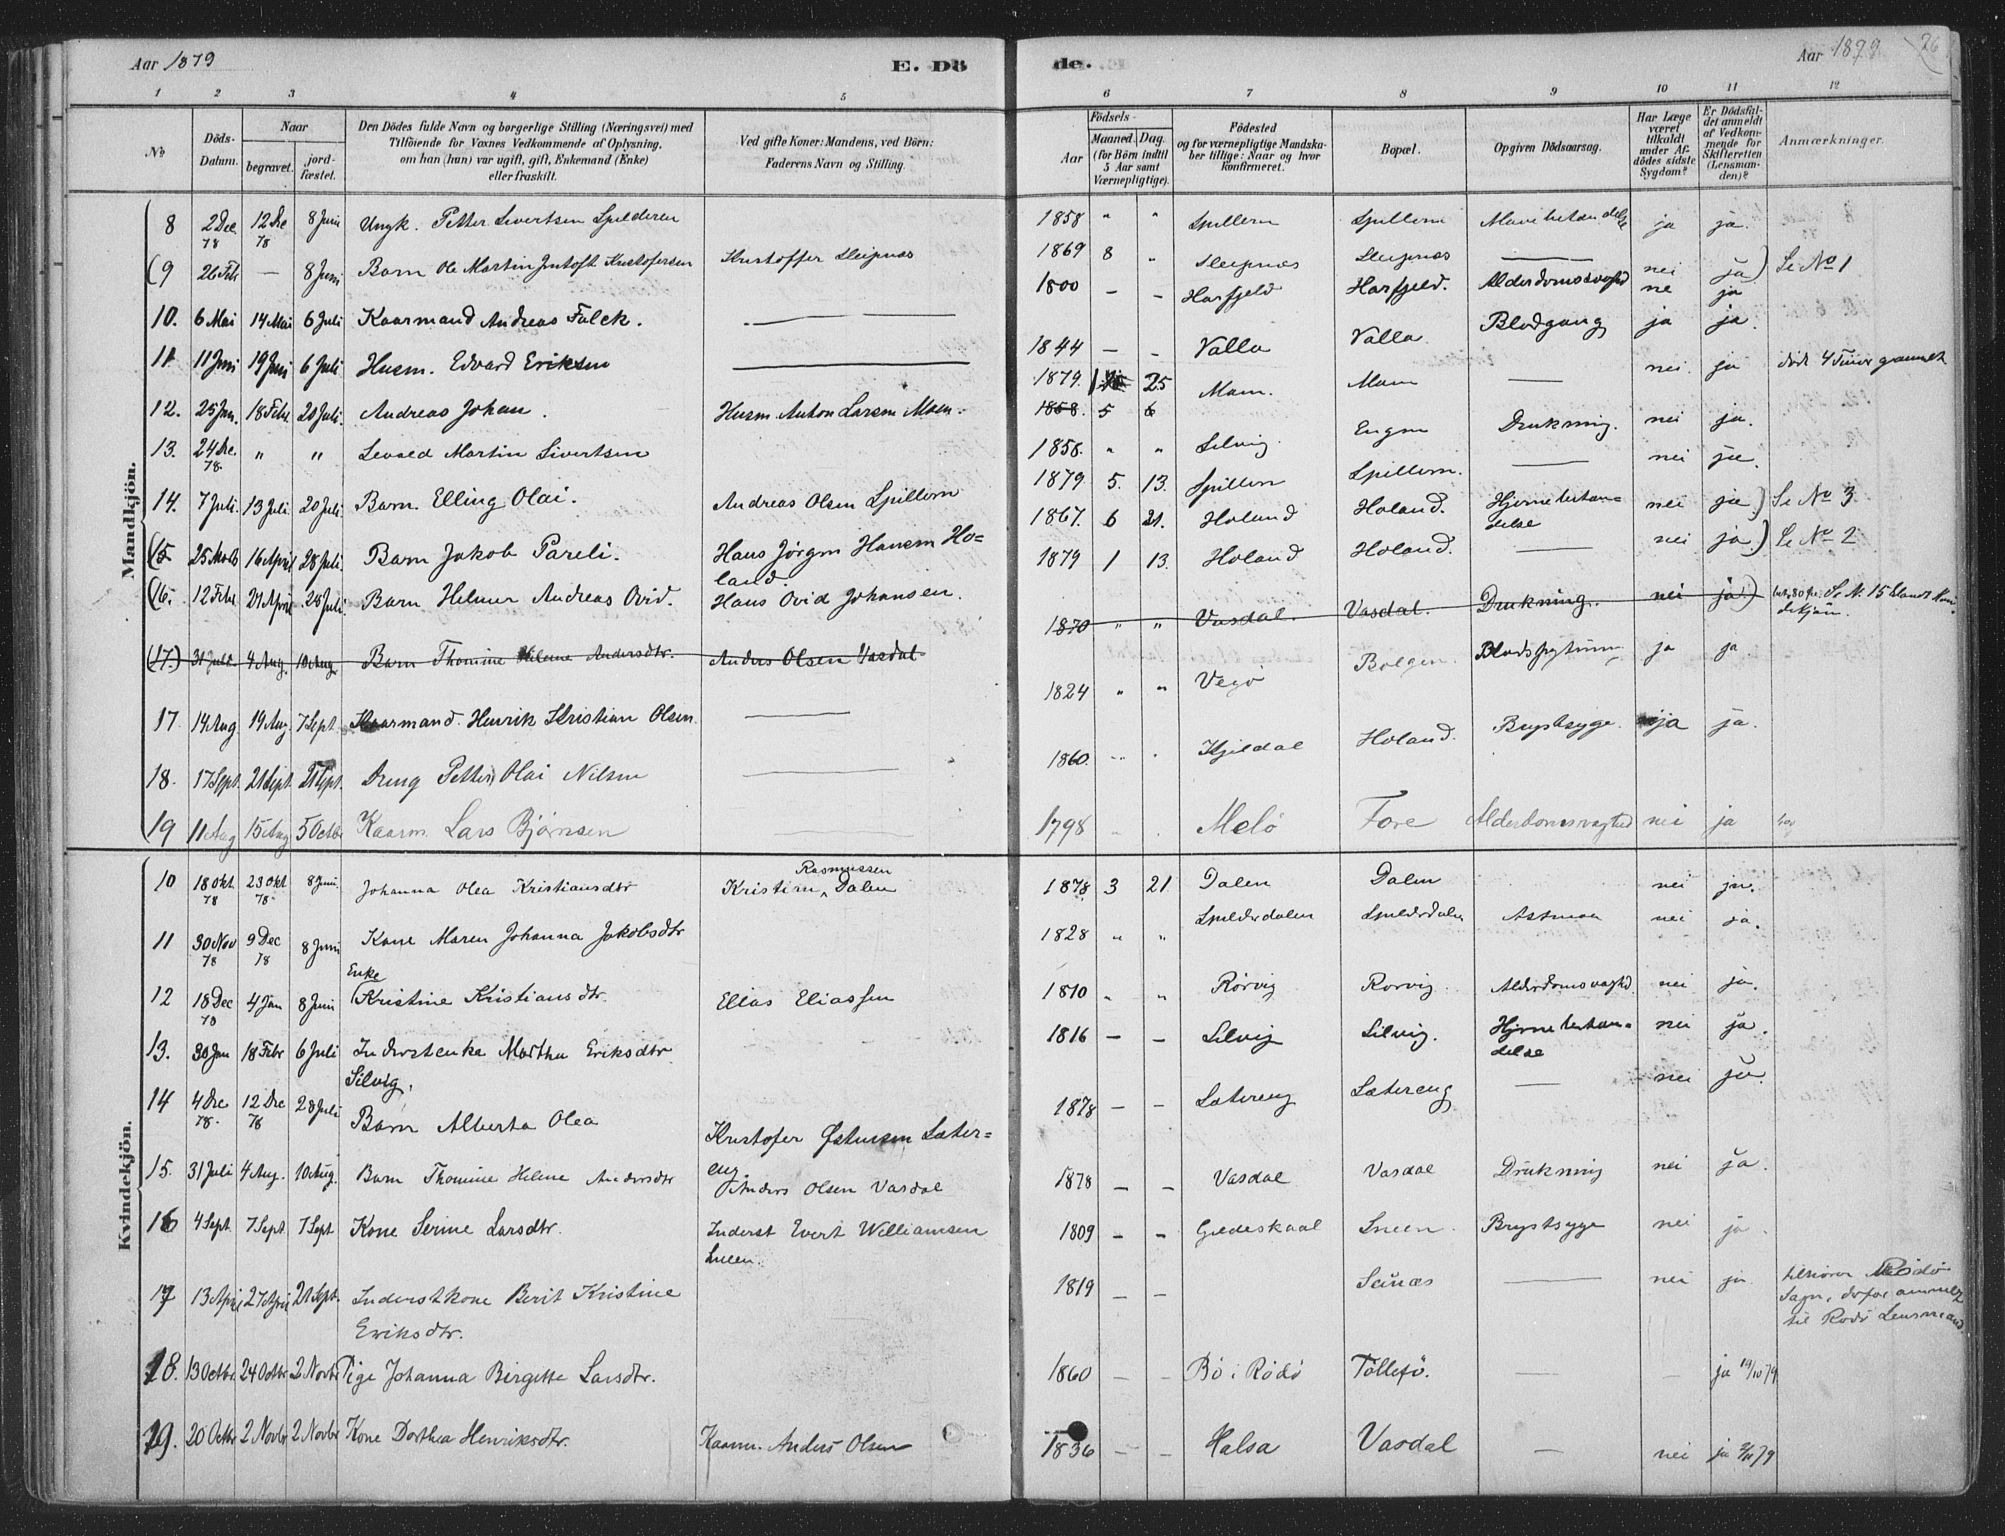 Aar 1879
E. Dö
de.
Aar 1879
26
1 2 3 4 5 6 7 8 9 10 11 12
No
Döds-Datum.
Naar
begravet.
jord-fæstet.
Den Dödes fulde Navn og borgerlige Stilling (Næringsvei) med
Tilföiende for Voxnes Vedkommende af Oplysning,
om han (hun) var ugift, gift, Enkemand (Enke)
eller fraskilt.
Ved gifte Koner: Mandens, ved Börn:
Faderens Navn og Stilling.
Födsels-
Aar
Maaned. Dag.
(for Börn indtil
5 Aar samt
Værnepligtige).
Födested
og for værnepligtige Mandska-
ber tillige: Naar og hvor
konfirmeret.
Bopæl.
Opgiven Dödsaarsag.
Har Læge
været
tilkaldt
under Af-
dödes sidste
Sygdom?
Er Dödsfal-
det anmeldt
af Vedkom-
mende for
Skifteretten
(Lensman-
den)?
Anmærkninger.
Mandkjön.
8 2 Dec 78 12 Dec 78 8 Juni Ungk. Petter Sivertsen Spilderen 1858 " " Spillern Spillern ja ja.
(9 26 Feb — 8 Juni Barn Ole Martin Kristofersen Kristoffer Sleipnæs 1869 8 " Sleipnæs Sleipnæs — nei ja) Se No 1
10. 6 Mai 14 Mai 6 Juli Kaarmand Andreas Falck. — 1800 — — Harfjeld Harfjeld. Alderdomssvaghed ne ja
11 11 Juni 19 Juni 6 Juli Husm. Edvard Eriksen — 1844 — — Valla Valla Blodgang ja ja.
12. 25 Jan. 18 Febr. 20 Juli. Andreas Johan. Husm. Anton Larsen Moen. 1879. 1 25 Moen. Moen — nei. ja døde 4 Timer gammel
13. 24 Dec. 78. " " Sevald Martin Sivertsen 1858. 5 6 1858. " " Silvig. Engen Drukning. nei ja.
14. 7 Juli. 13 Juli. 20 Juli. Barn Elling Olai. Andreas Olsen Spillern 1879 5. 13. Spillern Spillern. — nei ja.
(15 25 Marts 16 April 28 Juli. Barn Jakob Pareli. Hans Jørgen Hansen Ho=
land. 1867. 6 21. Holand Holand. Hjernebetæn=
delse nei ja) Se No 3
(16. 12 Febr 21 April 28 Juli. Barn Helmer Andreas Ovid. Hans Ovid Johansen. 1879 1 13. Holand Holand. — nei ja.) Se No 2
(17.) 31 Juli. 4 Aug. 10 Aug Barn Thomine Helene Andersdtr. Anders Olsen Vasdal 1870 " " Vasdal. Vasdal. Drukning. nei ja) Se N. 15 blandt Kvin-
dekjøn.
17. 14 Aug 19 Aug. 7 Sept. Kaarmand. Henrik Kristian Olsen. — 1824 " " Vegø Bolgen. Blodspytning ja ja
18. 17 Sept. 21 Sept. 21 Sept. Dreng Petter Olai Nilsen — 1860. " " Kjeldal Holand. Brystsyge. ja ja.
19 11 Aug 15 Aug 5 Octbr Kaarm. Lars Bjørnsen — 1798 " . Melø Fore Alderdomssvaghed nei ja
Kvindekjön.
10 18 Okt. 78 23 Okt 78. 8 Juni. Johanna Olea Kristiansdtr Kristian Rasmussen Dalen 1878 3 21 Dalen Dalen nei ja.
11 30 Nov 78 9 Dec 78 8 Juni Kone Maren Johanna Jakobsdtr 1828 " " Spilderdalen Spilderdalen Astma nei ja.
12 18 Dec 78 4 Jan 8 Juni Enke Kristine Kristiansdtr. Elias Eliassen 1810 " " Rørvig Rørvig. Alderdomssvaghd nei ja.
13. 30 Jan 18 Febr 6 Juli Inderstenke Martha Eriksdtr
Silvig. 1816 — — Silvig Silvig. Hjernebetæn=
delse nei ja.
14 4 Dec 78. 12 Dec 78 28 Juli Barn Alberta Olea Kristofer Østensen Sæter=
eng. 1878 — — Sætereng Sætereng — nei ja.
15. 31 Juli 4 Aug. 10 Aug. Barn Thomine Helene Andersdtr Anders Olsen Vasdal 1878 — — Vasdal Vasdal Drukning nei ja.
16 4 Sept. 7 Sept 7 Sept Kone Serine Larsdtr. Inderst Evert Williamsen
Sneen. 1809 — — Gildeskaal Sneen. Brystsyge nei ja.
17 13 April 27 April 21 Sept. Inderstkone Berit Kristine
Eriksdtr. 1819 — — Seinæs — nei ja. tilhører Rødø
Sogn, derfor anmeldt
til Rødø Lensmand
18. 13 Octbr. 24 Octbr 2 Novbr Pige Johanna Birgitte Larsdtr. 1860 — — Bø i Rødø Töllefö. — — ja 19/10 79
19. 20 Octbr 2 Novbr 2 Novbr Kone Dorthea Henriksdtr. Kaarm. Anders Olsen 1836 — — Halsa Vasdal — nei ja 2/11 79